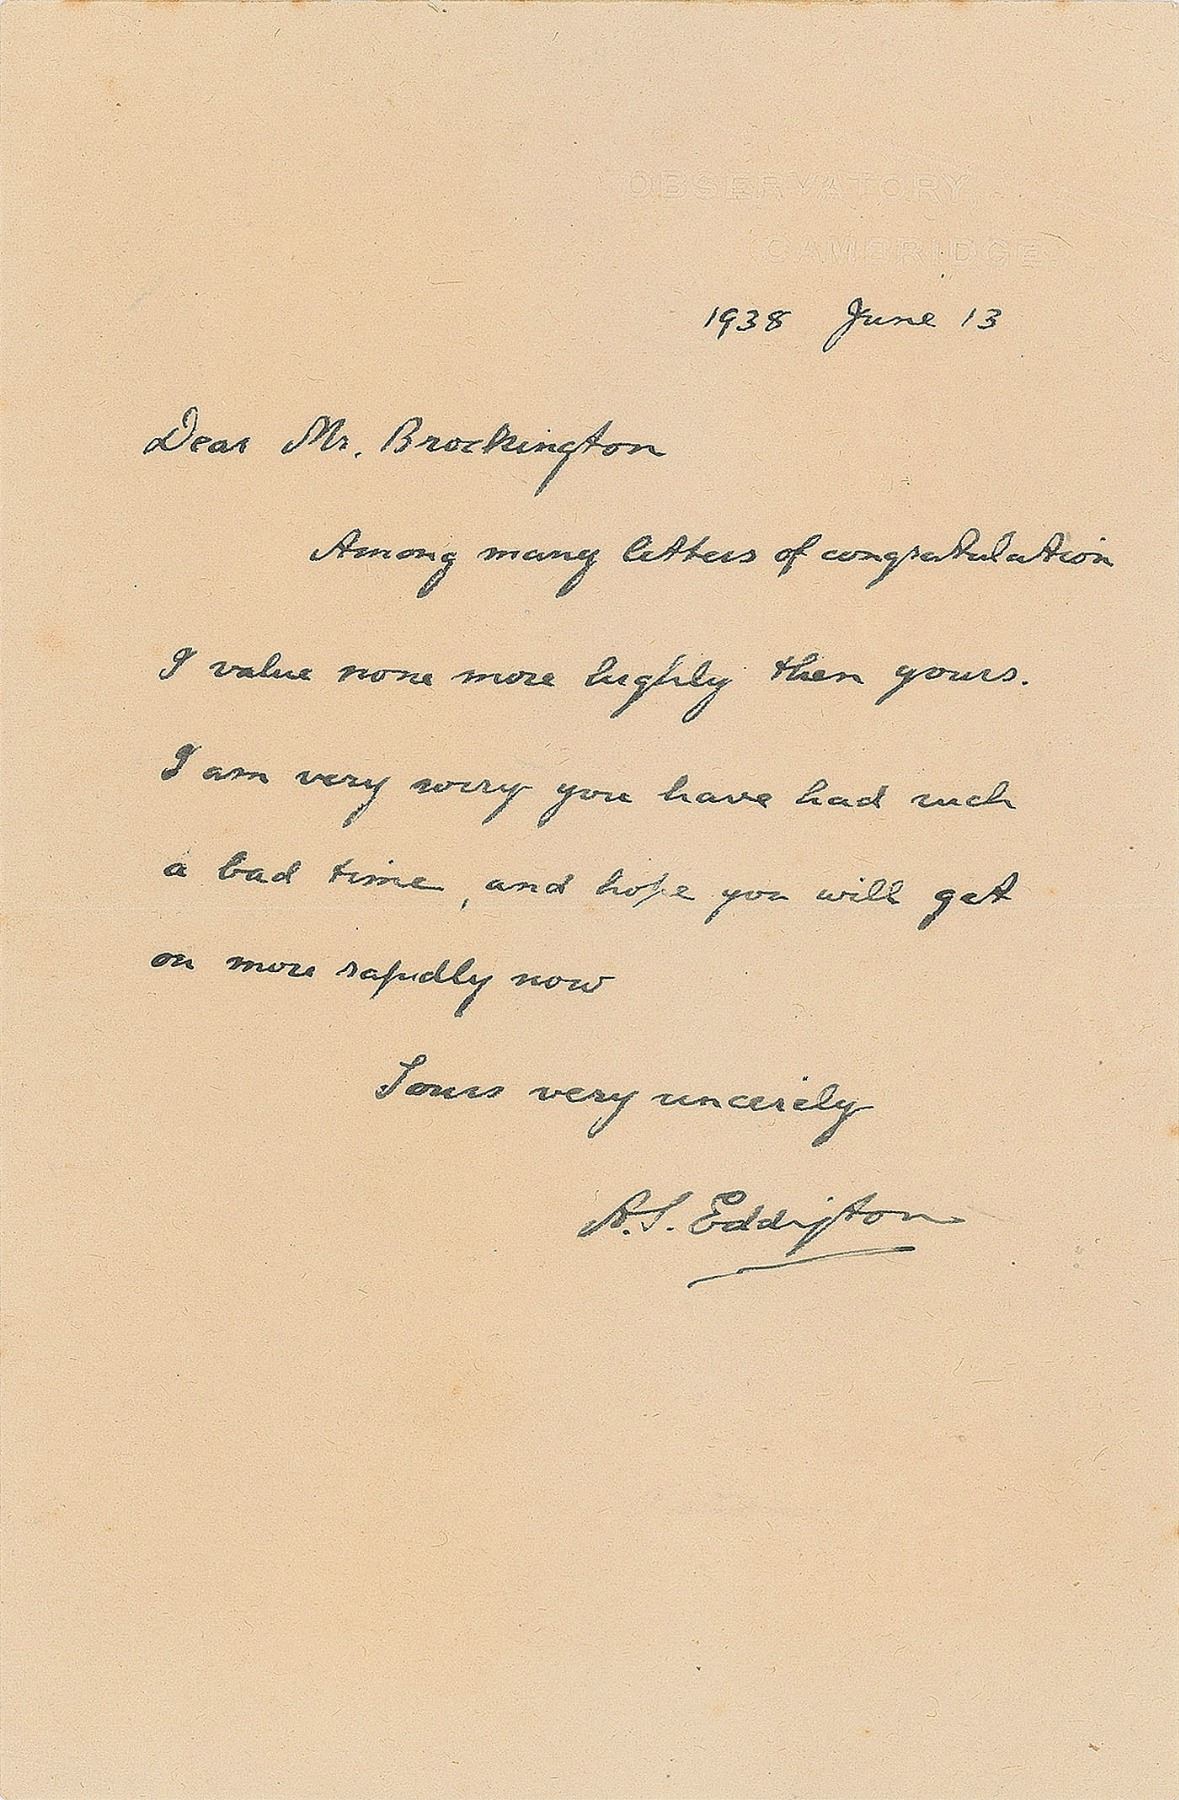 OBSERVATORY,
CAMBRIDGE.
1938 June 13
Dear Mr. Brockington
Among many letters of congratulation
I value none more highly than yours.
I am very sorry you have had such
a bad time, and hope you will get
on more rapidly now
Yours very sincerely
A.S. Eddington